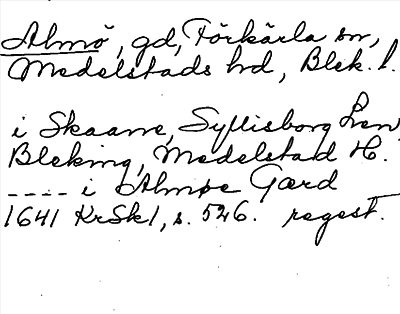 Almö, gd, Förkärla sn,
Medelstads hd, Blek. l.
i Skaane, Syllisborg Len
Bleking, Medelstad H.
---- i Almøe Gaard
1641 KrSk1, s. 526. regest.